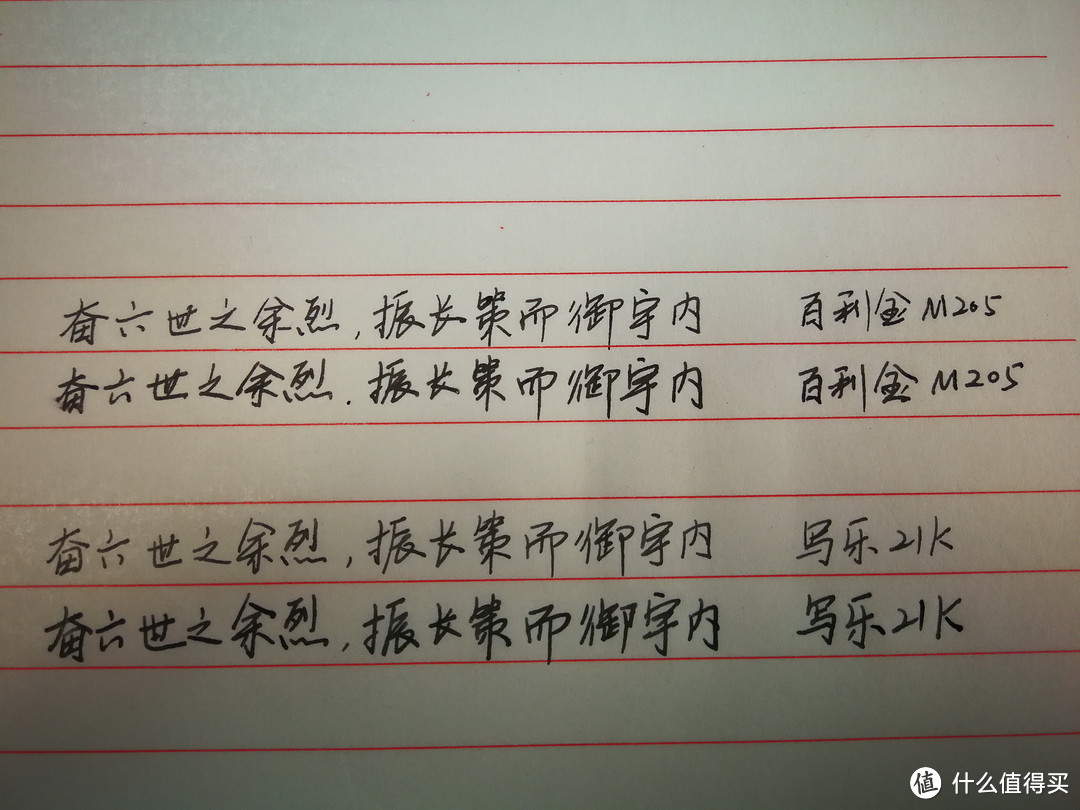 奋六世之余烈,振长策而御宇内 百利金 M205
奋六世之余烈.振长策而御宇内 百利金 M205
奋六世之余烈,振长策而御宇内 写乐21K
奋六世之余烈,振长策而御宇内 写乐21K
值 什么值得买